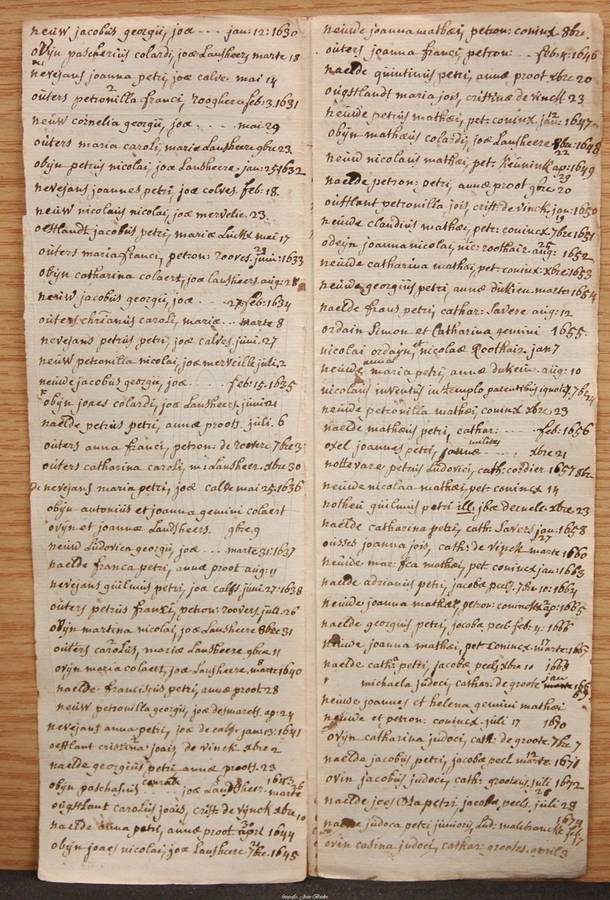 neuw jacobus georgii, joæ - - - jan: 12: 1630
obijn pascherius colardi, joæ Lansheers, marte 18
nevejans joanna petri, joæ calve. mai 14
outers petronilla franci, rooghers feb: 3. 1631
neuw cornelia georgii, joæ . - - . mai 29
outers maria caroli, mariæ Lansheere 9bre 23
obijn petrus nicolai, joæ Lansheere jan: 25 1632
nevejans joannes petri, joæ colves. feb: 18.
neuw nicolaus nicolai, joæ mervelie. 23.
oestlandt jacobus petri, mariæ mai 17
outers maria franci, petron: roores. juni: 1633
obijn catharina colaert, joæ lansheers. aug: 28
neuw jacobus georgii, joæ - - - 27 feb: 1634
outers chrianus caroli, mariæ - - marte 8
nevejans petrus petri, joæ calves. juni. 27
neuw petronilia nicolai, joæ merveille juli. 2
neude jacobus georgii, joæ . . . . feb: 15. 1635
obijn joaes colardi, joæ Lansheers. juni 21
naelde petrus petri, annæ proots. juli. 6
outers anna franci, petron: de roovere 7bre 3
outers catharina caroli, m: Lansheer. xbre 30
nevejans maria petri, joæ calve mai 25 1636
obijn antonius et joanna gemini colaert
ovijn et joannæ Landsheers. 9bre. 9
neuw Ludovica georgii, joæ - - - marte 31: 1637
naelde franca petri, annæ proot aug: 11
nevejans guilmus petri, joæ calfs. juni 27: 1638
outers petrus franci, petron: roovers juli. 26
obijn martina nicolai, joæ Lansheere 8bre 31
outers carolus, mariæ Lansheere 9bre 11
ovijn maria colaert, joæ Lansheere marte 1640
naelde franciscus petri, annæ proot 28
neuw petronilla georgii, joæ desmarets. ap: 24
nevejans anna petri, joæ de calf. jan: 13: 1641
oestlant cristina joais, de vinck. xbre 2
naelde georgius petri, annæ proots. 23
obijn paschasius conrads joæ Landtsheer. marte 1643
ougstlant carolus joais, crist: de vijnck xbre 10
naelde anna petri, annæ proot april 1644
obijn joaes nicolai, joæ Lansheere 7bre. 1645
neuwde joanna mathei, petron: coninx 8bre.
outers joanna franci, petron: . . feb: 4: 1646
naelde quintinus petri, annæ proot xbre 20
ougstlandt maria jois, cristinæ de vinck 23
neuwde petrus mathæi, pet: coninx. jan: 1647
obijn mathæus colardi, joæ Lansheere 8bre: 1648
neuw nicolaus mathæi, pet: ap: 1649
naelde petron: petri, annæ proot 9bre 20
oustlant petronilla jois, crist: de vinck. jan: 1650
neuwde claudius mathæi, pet: coninx. 7bre 1651
odeijn joanna nicolai, nic: roothair. aug: 1652
neuwde catharina mathæi, pet coninx xbre 1653
neuwde, georgius petri, annæ dukieu. marte 1654
naelde frans petri, cathar: Savere aug: 12
ordain Simon et Catharina gemini 1655.
nicolai ordayn, et nicolæ Roothair. jan 7
neuwde maria petri, annæ dukeir - aug: 10
nicolaus inventus in templo parentibus ignotis, 7bre 24
neuwde petronilla mathæi, coninx xbre. 23
naelde mathæus petri, cathar: - - - - feb: 1656
oxel joannes petri, joannæ militis xbre 21
nottevare petrus Ludovici, cath: cordier 1657 8bre
neuwde nicolaa mathæi, pet: coninex 14
notheu guilmus petri ille: jbæ dernelle xbre 23
naelde catharina petri, cath: Savers jan: 1658
ousses joanna jois, cath: de vinck marte 1660
neuwde mar: fca mathæi, pet coninex jan: 1663
naelde adrianus petri, jacobæ peel. 7bre 10: 1664
neuwde joanna mathæi, petron: coninck ap: 1665
naelde georgius petri, jacobæ peel feb 4: 1666
neuwde joanna mathæi, pet: coninex. marte: 1667
naelde cathâ petri, jacobæ peel xbre 10 1668
michaela judoci, cathar: de groote jan
neuwde joannes et helena gemini mathæi
neuwde et petron: coninex. juli 17 1670
ovijn catharina judoci, cath: de groote 7bre 7
naelde jacobus petri, jacobæ peel marte 1671
ovin jacobus judoci, cath: grootens. juli 1672
naelde joes Bta petri, jacobæ peels. juli 28
naelde judoca petri junioris, Lud: malebrancke feb 17 1674
ovin casina judoci, cathar: grootes. april 3